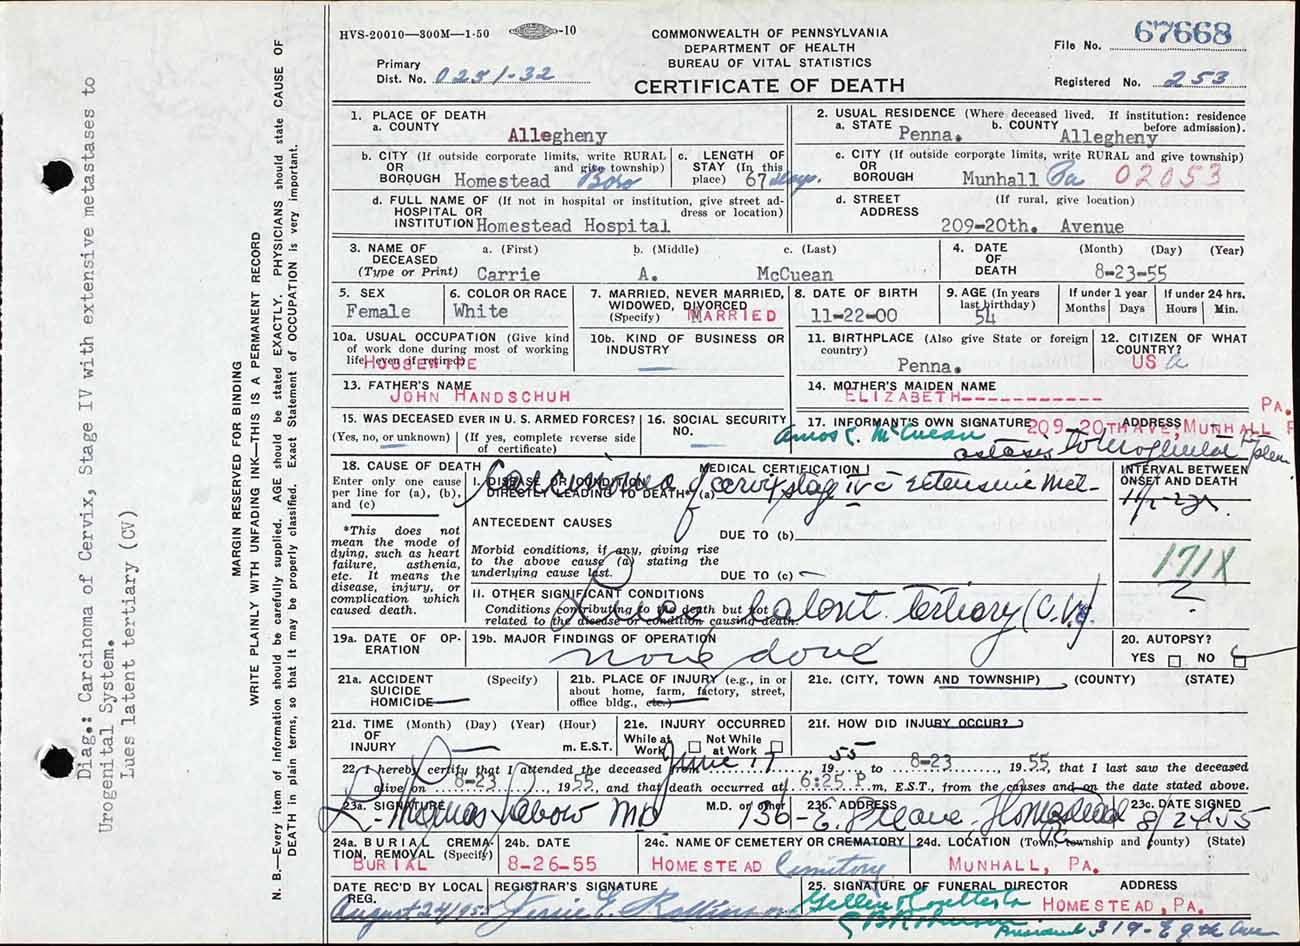 HVS-20010—300M—1-50 -10
COMMONWEALTH OF PENNSYLVANIA
DEPARTMENT OF HEALTH
BUREAU OF VITAL STATISTICS
CERTIFICATE OF DEATH
Primary
Dist. No. 0251-32
File No. 67668
Registered No. 253
1. PLACE OF DEATH
a. COUNTY
Allegheny
2. USUAL RESIDENCE (Where deceased lived. If institution: residence before admission).
a. STATE Penna. b. COUNTY Allegheny
b. CITY (If outside corporate limits, write RURAL
OR and give township)
BOROUGH Homestead Boro
c. LENGTH OF
STAY (In this
place) 67 days.
c. CITY (If outside corporate limits, write RURAL and give township)
OR
BOROUGH Munhall Pa 02053
d. FULL NAME OF (If not in hospital or institution, give street ad-
HOSPITAL OR dress or location)
INSTITUTION Homestead Hospital
d. STREET (If rural, give location)
ADDRESS
209-20th. Avenue
3. NAME OF a. (First) b. (Middle) c. (Last)
DECEASED
(Type or Print) Carrie A. McCuean
4. DATE (Month) (Day) (Year)
OF
DEATH 8-23-55
5. SEX
Female
6. COLOR OR RACE
White
7. MARRIED, NEVER MARRIED,
WIDOWED, DIVORCED
(Specify) MARRIED
8. DATE OF BIRTH
11-22-00
9. AGE (In years
last birthday)
54
If under 1 year
Months Days
If under 24 hrs.
Hours Min.
10a. USUAL OCCUPATION (Give kind
of work done during most of working
life, even if retired)
HOUSEWIFE
10b. KIND OF BUSINESS OR
INDUSTRY
11. BIRTHPLACE (Also give State or foreign
country)
Penna.
12. CITIZEN OF WHAT
COUNTRY?
US a
13. FATHER'S NAME
JOHN HANDSCHUH
14. MOTHER'S MAIDEN NAME
ELIZABETH------------
15. WAS DECEASED EVER IN U. S. ARMED FORCES?
(Yes, no, or unknown) (If yes, complete reverse side
of certificate)
16. SOCIAL SECURITY
NO.
17. INFORMANT'S OWN SIGNATURE ADDRESS PA.
Amos C. McCuean 209-20TH AVE, MUNHALL P
astasis to Urogenital
18. CAUSE OF DEATH MEDICAL CERTIFICATION
Enter only one cause
per line for (a), (b),
and (c)
I. DISEASE OR CONDITION
DIRECTLY LEADING TO DEATH* (a) Carcinoma of cervix stage IV c Extensive Met-
INTERVAL BETWEEN
ONSET AND DEATH
*This does not
mean the mode of
dying, such as heart
failure, asthenia,
etc. It means the
disease, injury, or
complication which
caused death.
ANTECEDENT CAUSES
DUE TO (b)
Morbid conditions, if any, giving rise
to the above cause (a) stating the
underlying cause last.
DUE TO (c)
171X
II. OTHER SIGNIFICANT CONDITIONS
Conditions contributing to the death but not
related to the disease or condition causing death.
Lues latent tertiary (C.V.)
?
19a. DATE OF OP-
ERATION
19b. MAJOR FINDINGS OF OPERATION
none done
20. AUTOPSY?
YES NO
21a. ACCIDENT (Specify)
SUICIDE
HOMICIDE
21b. PLACE OF INJURY (e.g., in or
about home, farm, factory, street,
office bldg., etc.)
21c. (CITY, TOWN AND TOWNSHIP) (COUNTY) (STATE)
21d. TIME (Month) (Day) (Year) (Hour)
OF
INJURY m. E.S.T.
21e. INJURY OCCURRED
While at Not While
Work at Work
21f. HOW DID INJURY OCCUR?
22. I hereby certify that I attended the deceased from June 17 1955 to 8-23, 1955, that I last saw the deceased
alive on 8-23, 1955, and that death occurred at 6:25 P.m, E.S.T., from the causes and on the date stated above.
23a. SIGNATURE M.D. or other
23b. ADDRESS
136-E. Homestead
23c. DATE SIGNED
8/24/55
24a. BURIAL, CREMA-
TION, REMOVAL (Specify)
BURIAL
24b. DATE
8-26-55
24c. NAME OF CEMETERY OR CREMATORY
HOMESTEAD Cemetery
24d. LOCATION (Town, township and county) (State)
MUNHALL, PA.
DATE REC'D BY LOCAL
REG.
August 24/1955
REGISTRAR'S SIGNATURE
25. SIGNATURE OF FUNERAL DIRECTOR ADDRESS
HOMESTEAD, PA.
President 319-E 9th Ave
MARGIN RESERVED FOR BINDING
WRITE PLAINLY WITH UNFADING INK—THIS IS A PERMANENT RECORD
N. B.—Every item of information should be carefully supplied. AGE should be stated EXACTLY. PHYSICIANS should state CAUSE OF
DEATH in plain terms, so that it may be properly classified. Exact Statement of OCCUPATION is very important.
Diag.: Carcinoma of Cervix, Stage IV with extensive metastases to
Urogenital System.
Lues latent tertiary (CV)